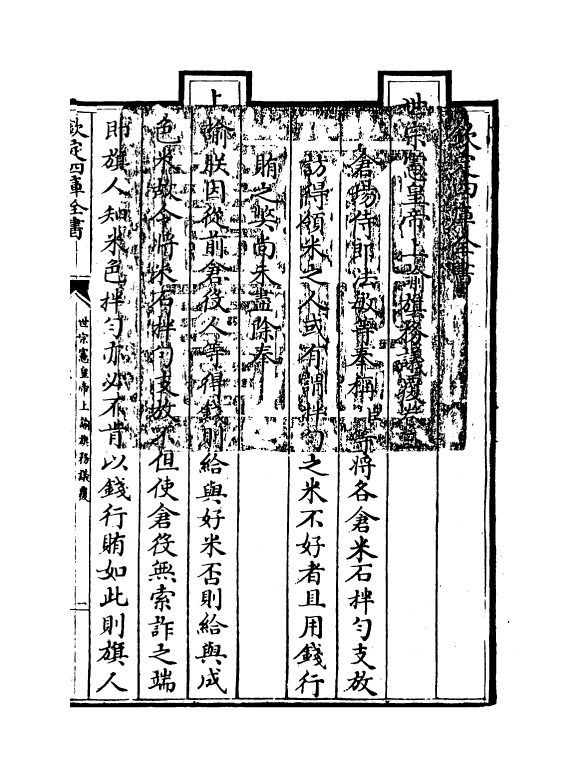 欽定四庫全書
世宗憲皇帝上諭旗務議覆卷
倉場侍郎法敏等奏稱臣等將各倉米石拌勻支放
訪得領米之人或有謂拌勻之米不好者且用錢行
賄之獘尚未盡除奏
上
諭朕因從前倉役人等得錢則給與好米否則給與成
色米故令將米石拌勻支放不但使倉役無索詐之端
即旗人知米色拌勻亦必不肯以錢行賄如此則旗人
欽定四庫全書
世宗憲皇帝上諭旗務議覆
一